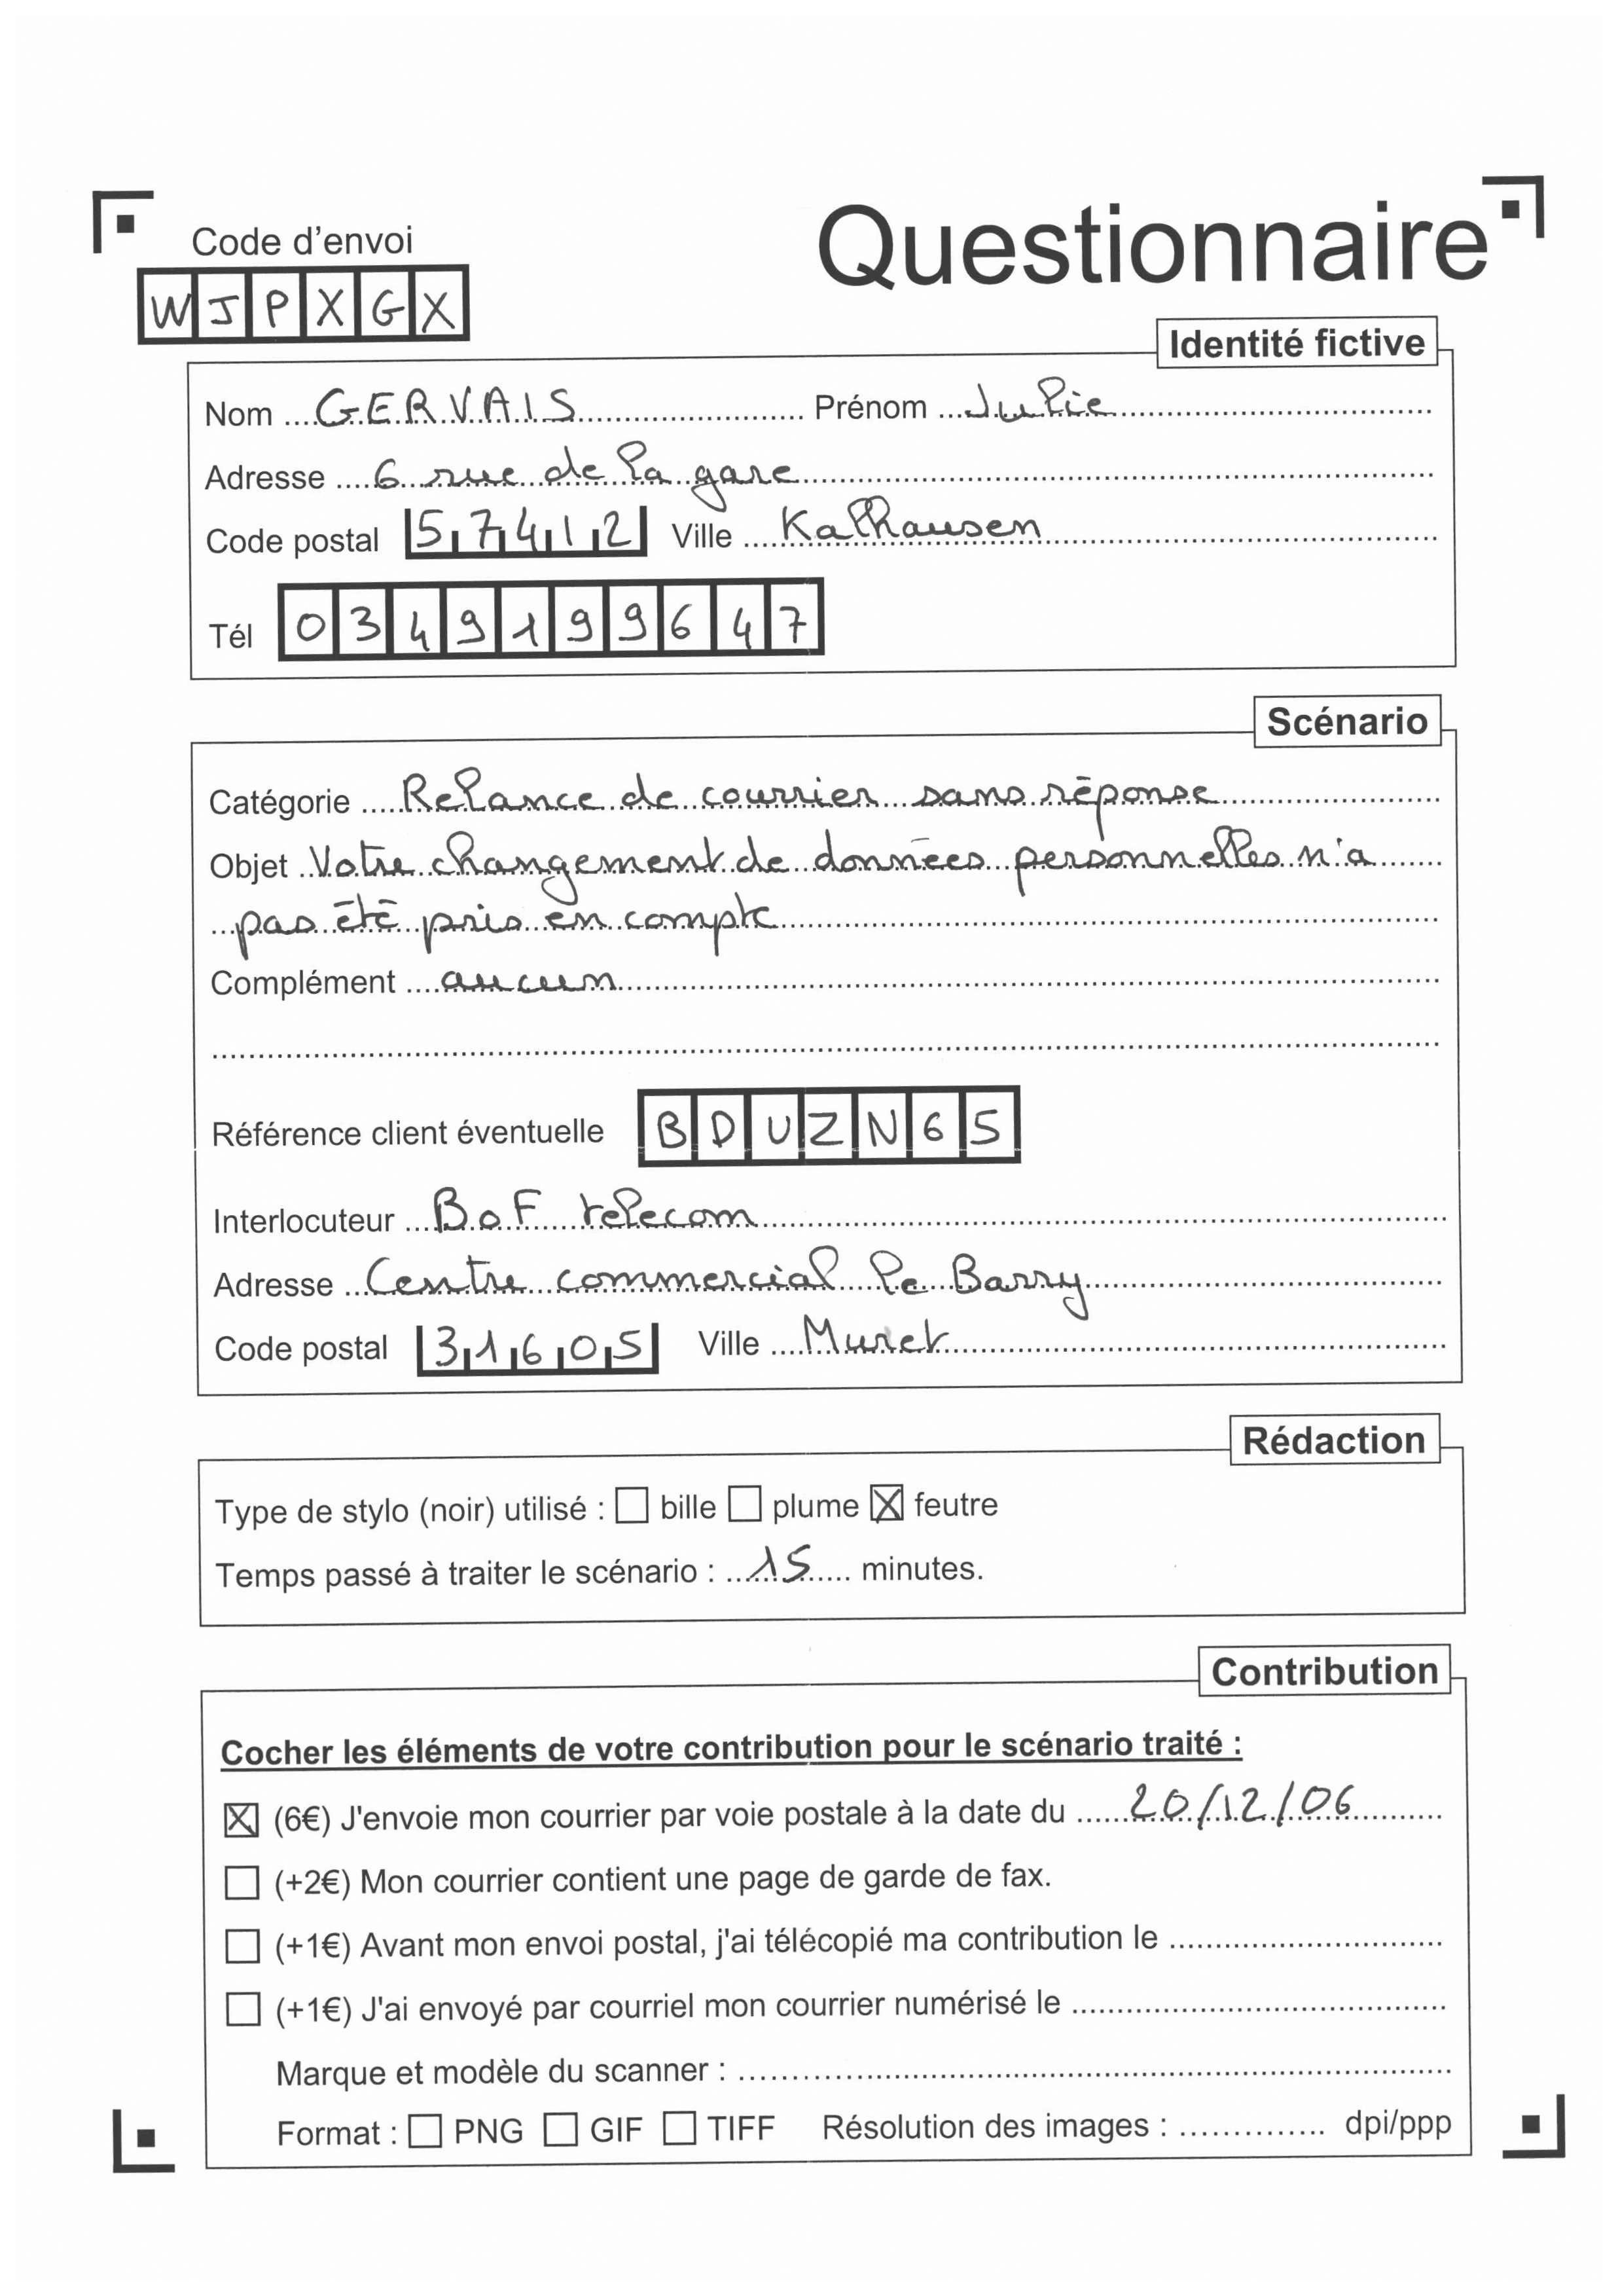 Questionnaire
Code d'envoi
WJPXGX
Identité fictive
Nom GERVAIS Prénom Julie
Adresse 6 rue de la gare
Code postal 57412 Ville Kalhausen
Tél 0349199647
Scénario
Catégorie Relance de courrier sans réponse
Objet Votre changement de données personnelles n'a
pas été pris en compte
Complément aucun
Référence client éventuelle BDUZN65
Interlocuteur BoF telecom
Adresse Centre commercial le Barry
Code postal 31605 Ville Muret
Rédaction
Type de stylo (noir) utilisé : ☐ bille ☐ plume ☒ feutre
Temps passé à traiter le scénario : 15 minutes.
Contribution
Cocher les éléments de votre contribution pour le scénario traité :
☒ (6€) J'envoie mon courrier par voie postale à la date du 20/12/06
☐ (+2€) Mon courrier contient une page de garde de fax.
☐ (+1€) Avant mon envoi postal, j'ai télécopié ma contribution le
☐ (+1€) J'ai envoyé par courriel mon courrier numérisé le
Marque et modèle du scanner :
Format : ☐ PNG ☐ GIF ☐ TIFF Résolution des images : dpi/ppp